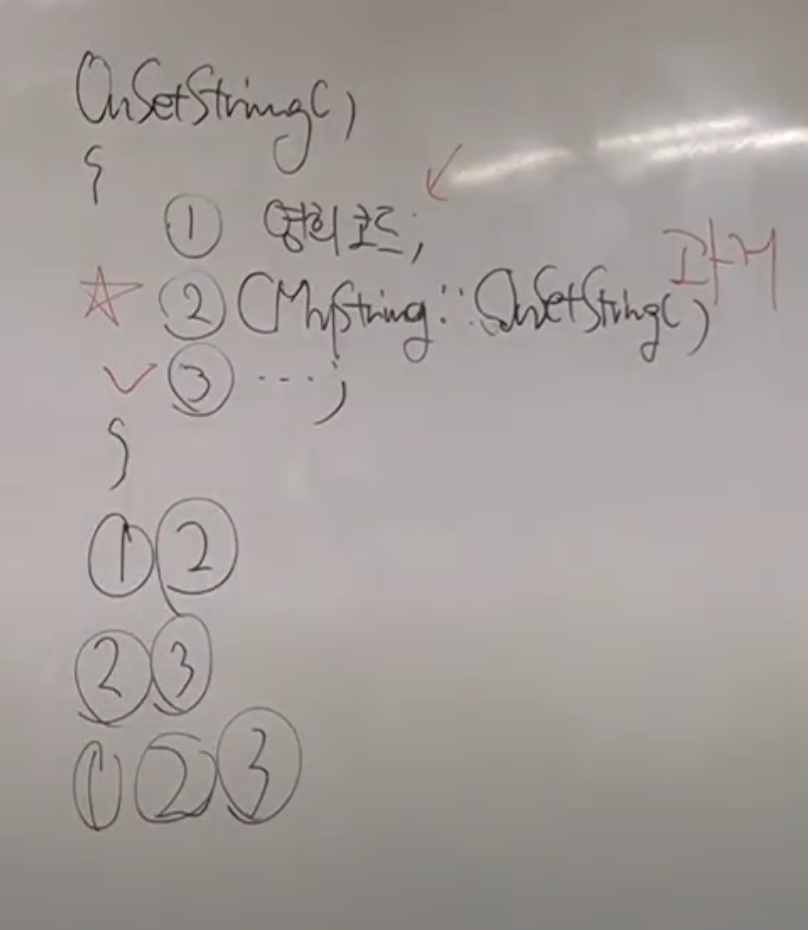 OnSetString()
{
① 영희 코드;
② CMyString::OnSetString()
③ ...;
}
① ②
② ③
① ② ③